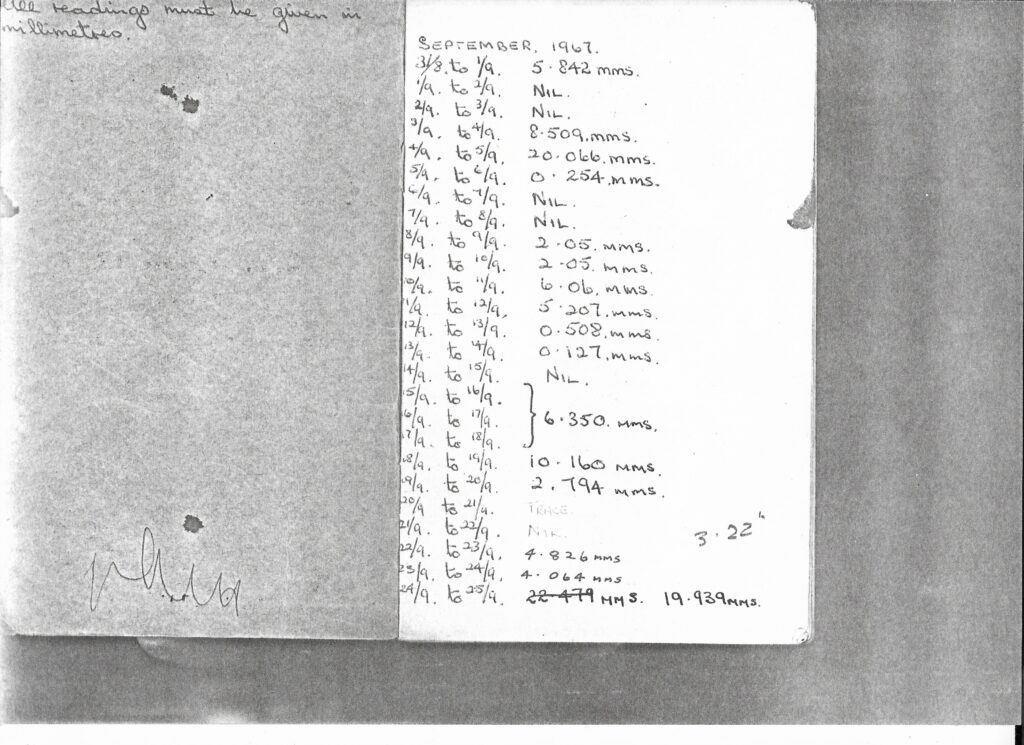 All readings must be given in
millimetres.
SEPTEMBER, 1967.
31/8. to 1/9. 5.842 mms.
1/9. to 2/9. NIL.
2/9. to 3/9. NIL.
3/9. to 4/9. 8.509. mms.
4/9. to 5/9. 20.066. mms.
5/9. to 6/9. 0.254. mms.
6/9. to 7/9. NIL.
7/9. to 8/9. NIL.
8/9. to 9/9. 2.05. mms.
9/9. to 10/9. 2.05. mms.
10/9. to 11/9. 6.06. mms.
11/9. to 12/9. 5.207. mms.
12/9. to 13/9. 0.508. mms.
13/9. to 14/9. 0.127. mms.
14/9. to 15/9. NIL.
15/9. to 16/9.
16/9. to 17/9. } 6.350. mms.
17/9. to 18/9.
18/9. to 19/9. 10.160 mms.
19/9. to 20/9. 2.794 mms.
20/9. to 21/9. TRACE.
21/9. to 22/9. NIL. 3.22"
22/9. to 23/9. 4.826 mms
23/9. to 24/9. 4.064 mms
24/9. to 25/9. 22.479 MMS. 19.939 MMS.